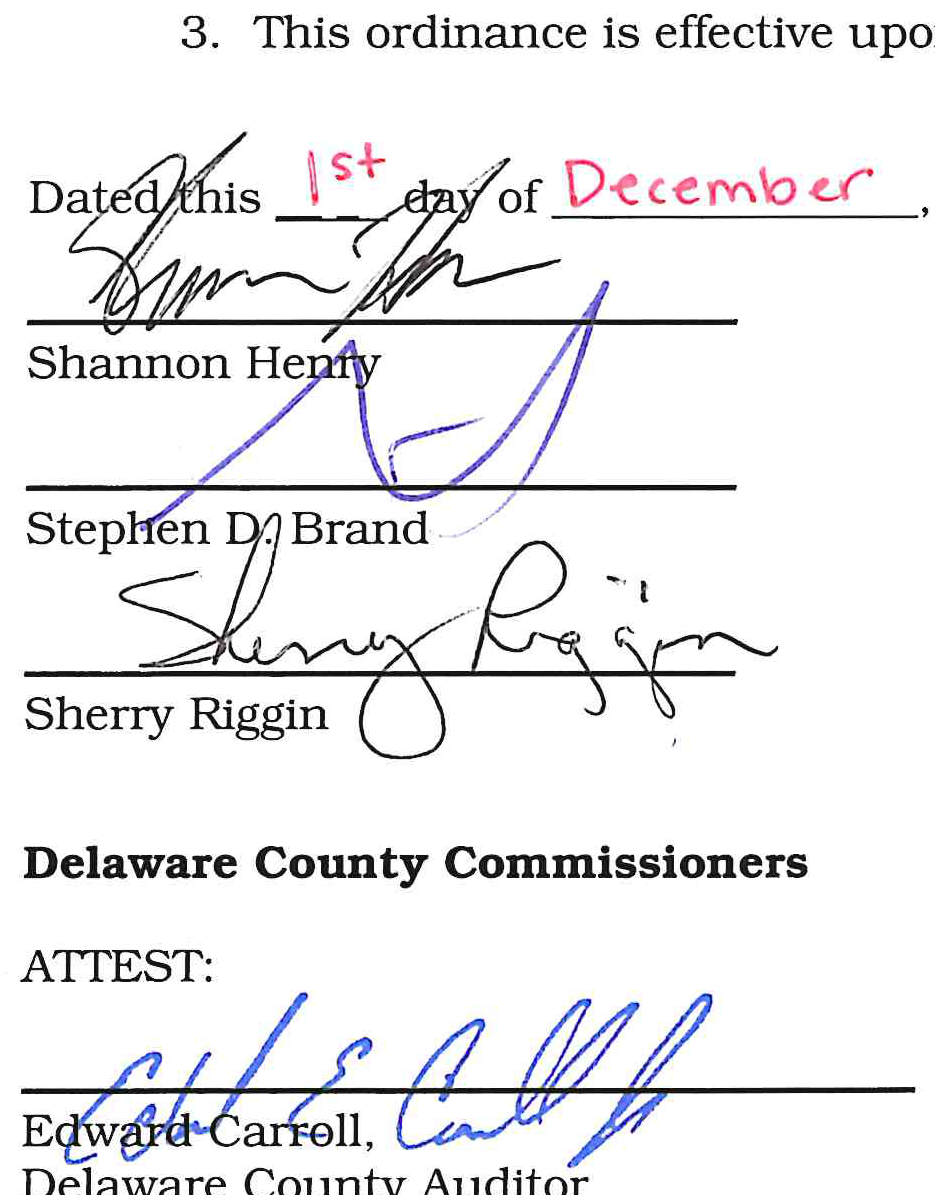 3. This ordinance is effective upo
Dated this 1st day of December,
Shannon Henry
Stephen D. Brand
Sherry Riggin
Sherry Riggin
Delaware County Commissioners
ATTEST:
Edward Carroll,
Delaware County Auditor